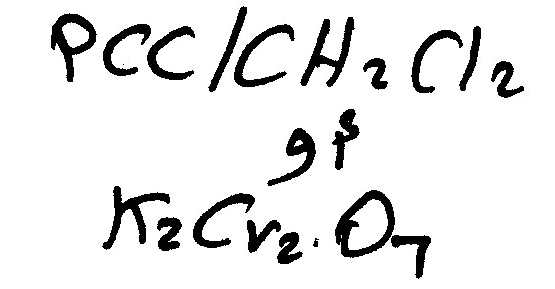 PCC/CH2Cl2
K2Cr2.O7